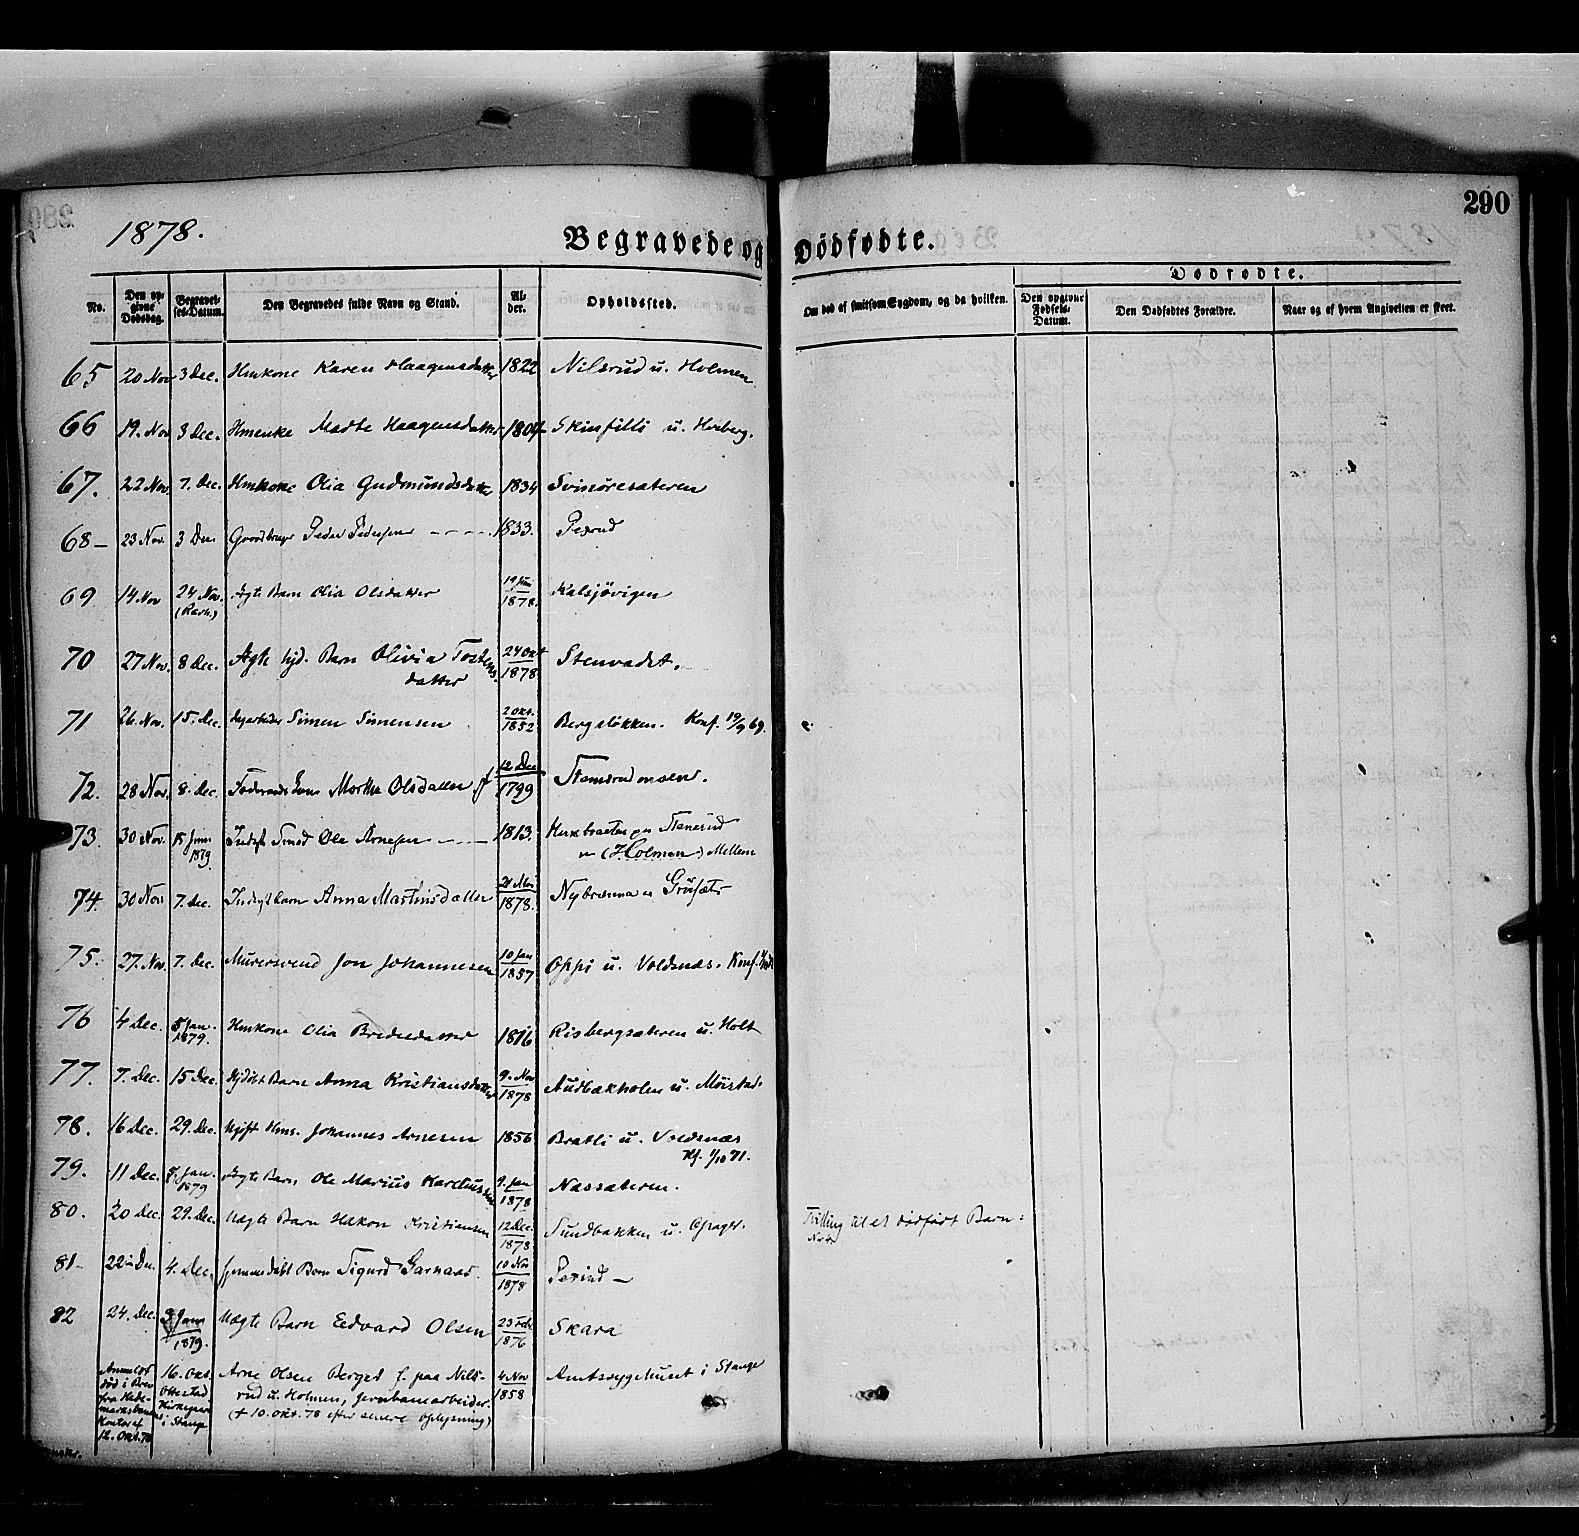 290
1878.
Begravede og Dødfødte.
Dødfødte.
No.
Den opgivne Dødsdag.
Begravelses-Datum.
Den Begravedes fulde Navn og Stand.
Alder.
Opholdssted.
Om død af smitsom Sygdom, og da hvilken.
Den opgivne Fødsels-Datum.
Den Dødfødtes Forældre.
Naar og af hvem Angivelsen er skeet.
65 20 Nov 3 Dec. Hmkone Karen Haagensdatter 1822 Nilsrud u. Holmen
66 19. Nov 3 Dec. Hmenke Marte Haagensdatter 1804 Skinfilli u. Hverberg.
67. 22 Nov. 7. Dec. Hmkone Olia Gudmundsdatter 1834 Svinøresæteren
68 – 23 Nov. 3 Dec Gaardbruger Peder Pedersen - - - - 1833.
69 14 Nov 24 Nov. (Kasth.) Ægte Barn Olia Olsdatter 19 Juni 1878. Kalsjövigen
70 27 Nov. 8 Dec. Ægte hjd. Barn Olivia Tostensdatter 24 Okt 1878 Stenvadet.
71 26. Nov. 15. Dec. Simen Simensen 2 Okt. 1852 Bergsløkken. Konf. 19/9 69.
72. 28 Nov. 8. Dec. Marthe Olsdatter 12 Dec 1799 Stemsrudmoen.
73. 30 Nov. 15 1879. Inderst Smed Ole Arnesen - - - 1813. Stenerud
(Holmen) Mellem
74. 30 Nov 7. Dec. Inderst barn Anna Martinsdatter 21 Mai 1878. Nybrænna u Grüsæt
75. 27. Nov. 7. Dec. Murersvend Jon Johannesen 10 Jan 1857 Oppi u. Voldsnæs. Konf.
76 4 Dec. 5 Jan. 1879. Hmkone Olia Bredesdatter 1816 Risbergsæteren u. Holt
77. 7. Dec. 15 Dec. Hjdøbt Barn Anna Kristiansdatter 9. Nov 1878 Audbækholen u. Möistad.
78. 16 Dec. 29. Dec. Ugift Hms. Johannes Arnesen 1856 Bratli u. Voldsnæs
Kf. 1/10 71.
79. 11 Dec. Jan. 1879 Ægte Barn Ole Marius Kareliussen 9. Jan 1878 Næssæteren.
80. 20 Dec. 29. Dec. Uægte Barn Håkon Kristiansen 12 Dec. 1878 Sundbakken u. Opagst. Tvilling til et dødfødt Barn.
81– 22 Dec. 4. Dec. hjemmedøbt Barn Sigurd Garnaas 10 Nov 1878
82 24. Dec. Jan 1879. Uægte Barn Edvard Olsen 23 Feb 1876 Skara
Anmeldt død i Brev fra Hedemarksbanens Kontor af 12. Okt. 78
16. Okt. Ottestad Kirkegaard i Stange
Arne Olsen Berget f. paa Nilsrud u. Holmen, jernbanearbeider.
(+ 10. Okt. 78 efter senere Oplysning)
4 Nov 1858
Amtssygehuset i Stange